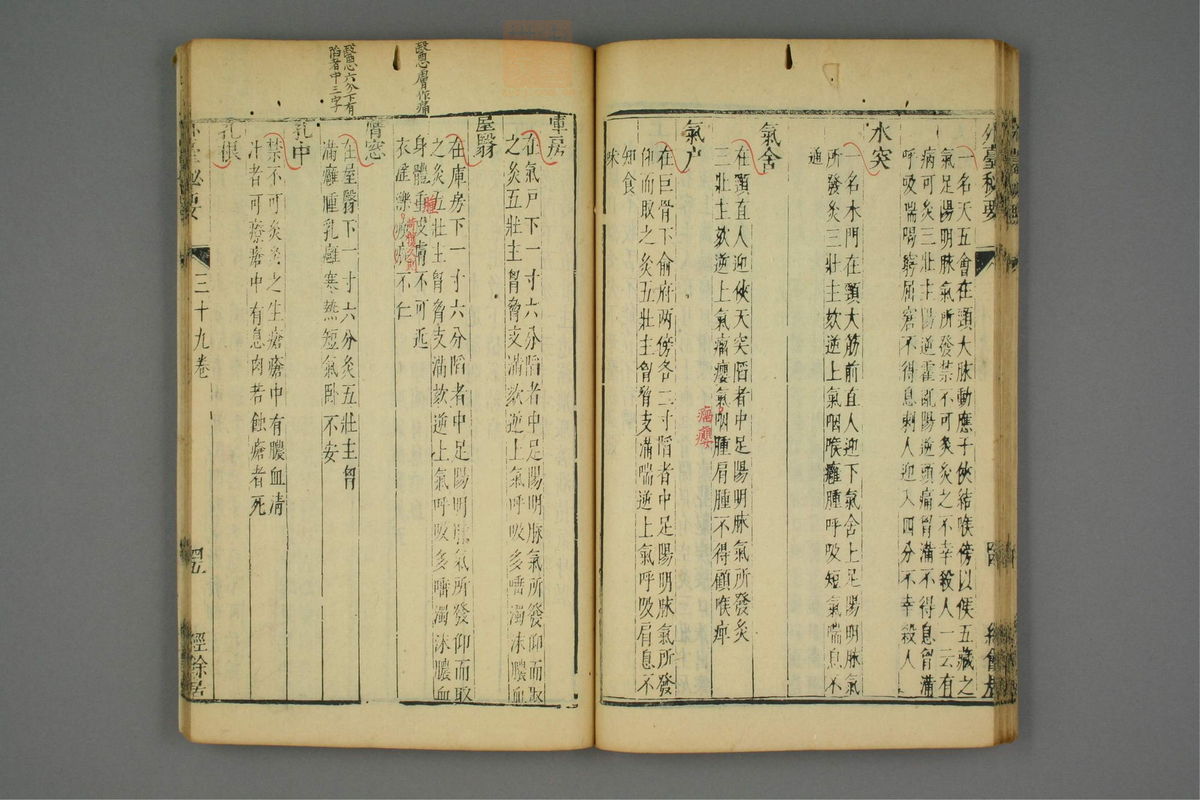 外臺秘要
一名天五會在頸大脉動應手俠結喉傍以候五藏之
氣足陽明脉氣所發禁不可灸灸之不幸殺人一云有
病可灸三壯主陽逆霍亂陽逆頭痛胷滿不得息胷滿
呼吸喘喝窮屈窘不得息刺人迎入四分不幸殺人
水突
一名水門在頸大筋前直人迎下氣舍上足陽明脉氣
所發灸三壯主欬逆上氣咽喉癰腫呼吸短氣喘息不
通
氣舍
在頸直人迎俠天突陷者中足陽明脉氣所發灸
三壯主欬逆上氣瘤癭氣咽腫肩腫不得顧喉痺
瘤癭
氣户
在巨骨下俞府兩傍各二寸陷者中足陽明脉氣所發
仰而取之灸五壯主胷脅支滿喘逆上氣呼吸肩息不
知食
味
醫惠膚作痛
醫惠六分下有
陷者中三字
庫房
在氣戸下一寸六分陷者中足陽明脉氣所發仰而取
之灸五壯主胷脅支滿欬逆上氣呼吸多唾濁沫膿血
屋翳
在庫房下一寸六分陷者中足陽明脉氣所發仰而取
之灸五壯主胷脅支滿欬逆上氣呼吸多唾濁沫膿血
身體重皮膚不可近
腫
衣 不仁
膺窓
在屋翳下一寸六分灸五壯主胷
滿癰腫乳癰寒熱短氣卧不安
乳中
禁不可灸灸之生瘡瘡中有膿血清
汁者可療瘡中有息肉若蝕瘡者死
乳根
外臺秘要
三十九卷
四五
經餘居